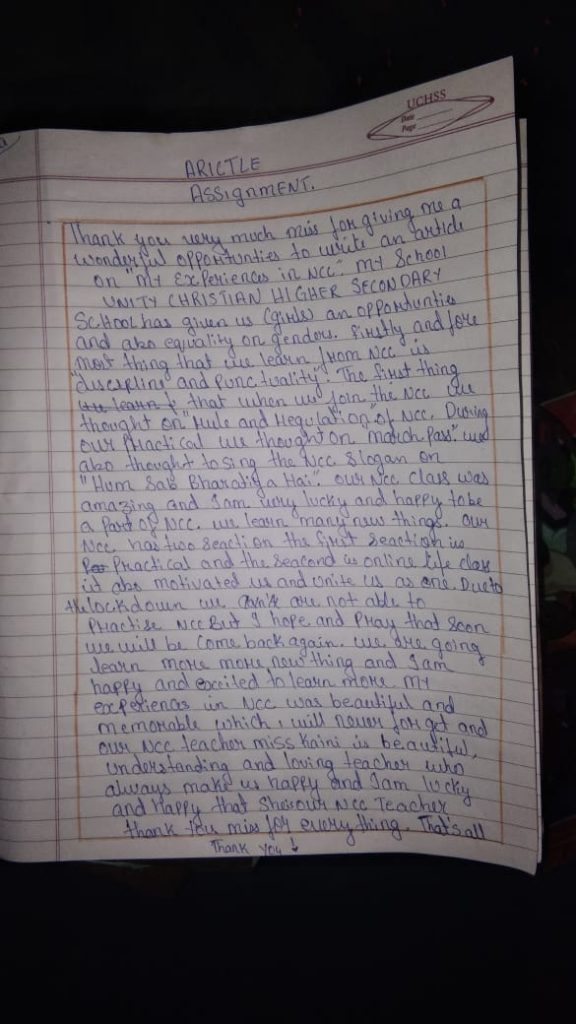 UCHSS
Date
Page
ARICTLE
ASSIGNMENT.
Thank you very much miss for giving me a
wonderful opportunities to write an article
on "My Experiences in NCC". My School
UNITY CHRISTIAN HIGHER SECONDARY
SCHOOL has given us (girls) an opportunties
and also equality on genders. Firstly and fore
most thing that we learn from NCC is
"discipline and Punctuality". The first thing
that when we join the NCC we
thought on "Rule and Regulation" of NCC. During
our Practical we thought on march Pass". we
also thought to sing the NCC slogan on
"Hum Sab Bharatiya Hai". our NCC class was
amazing and I am very lucky and happy to be
a Part of NCC. we learn many new things. our
NCC has two seaction the first seaction is
Practical and the seacond is online life class
it also motivated us and unite us as one. Due to
the lockdown we are not able to
Practise NCC But I hope and Pray that soon
we will be come back again. we are going
learn more more new thing and I am
happy and excited to learn more. My
experiences in NCC was beautiful and
memorable which i will never forget and
our NCC teacher miss Kaini is beautiful,
understanding and loving teacher who
always make us happy and I am lucky
and Happy that she is our NCC Teacher
thank you miss for everything. That's all
Thank you !